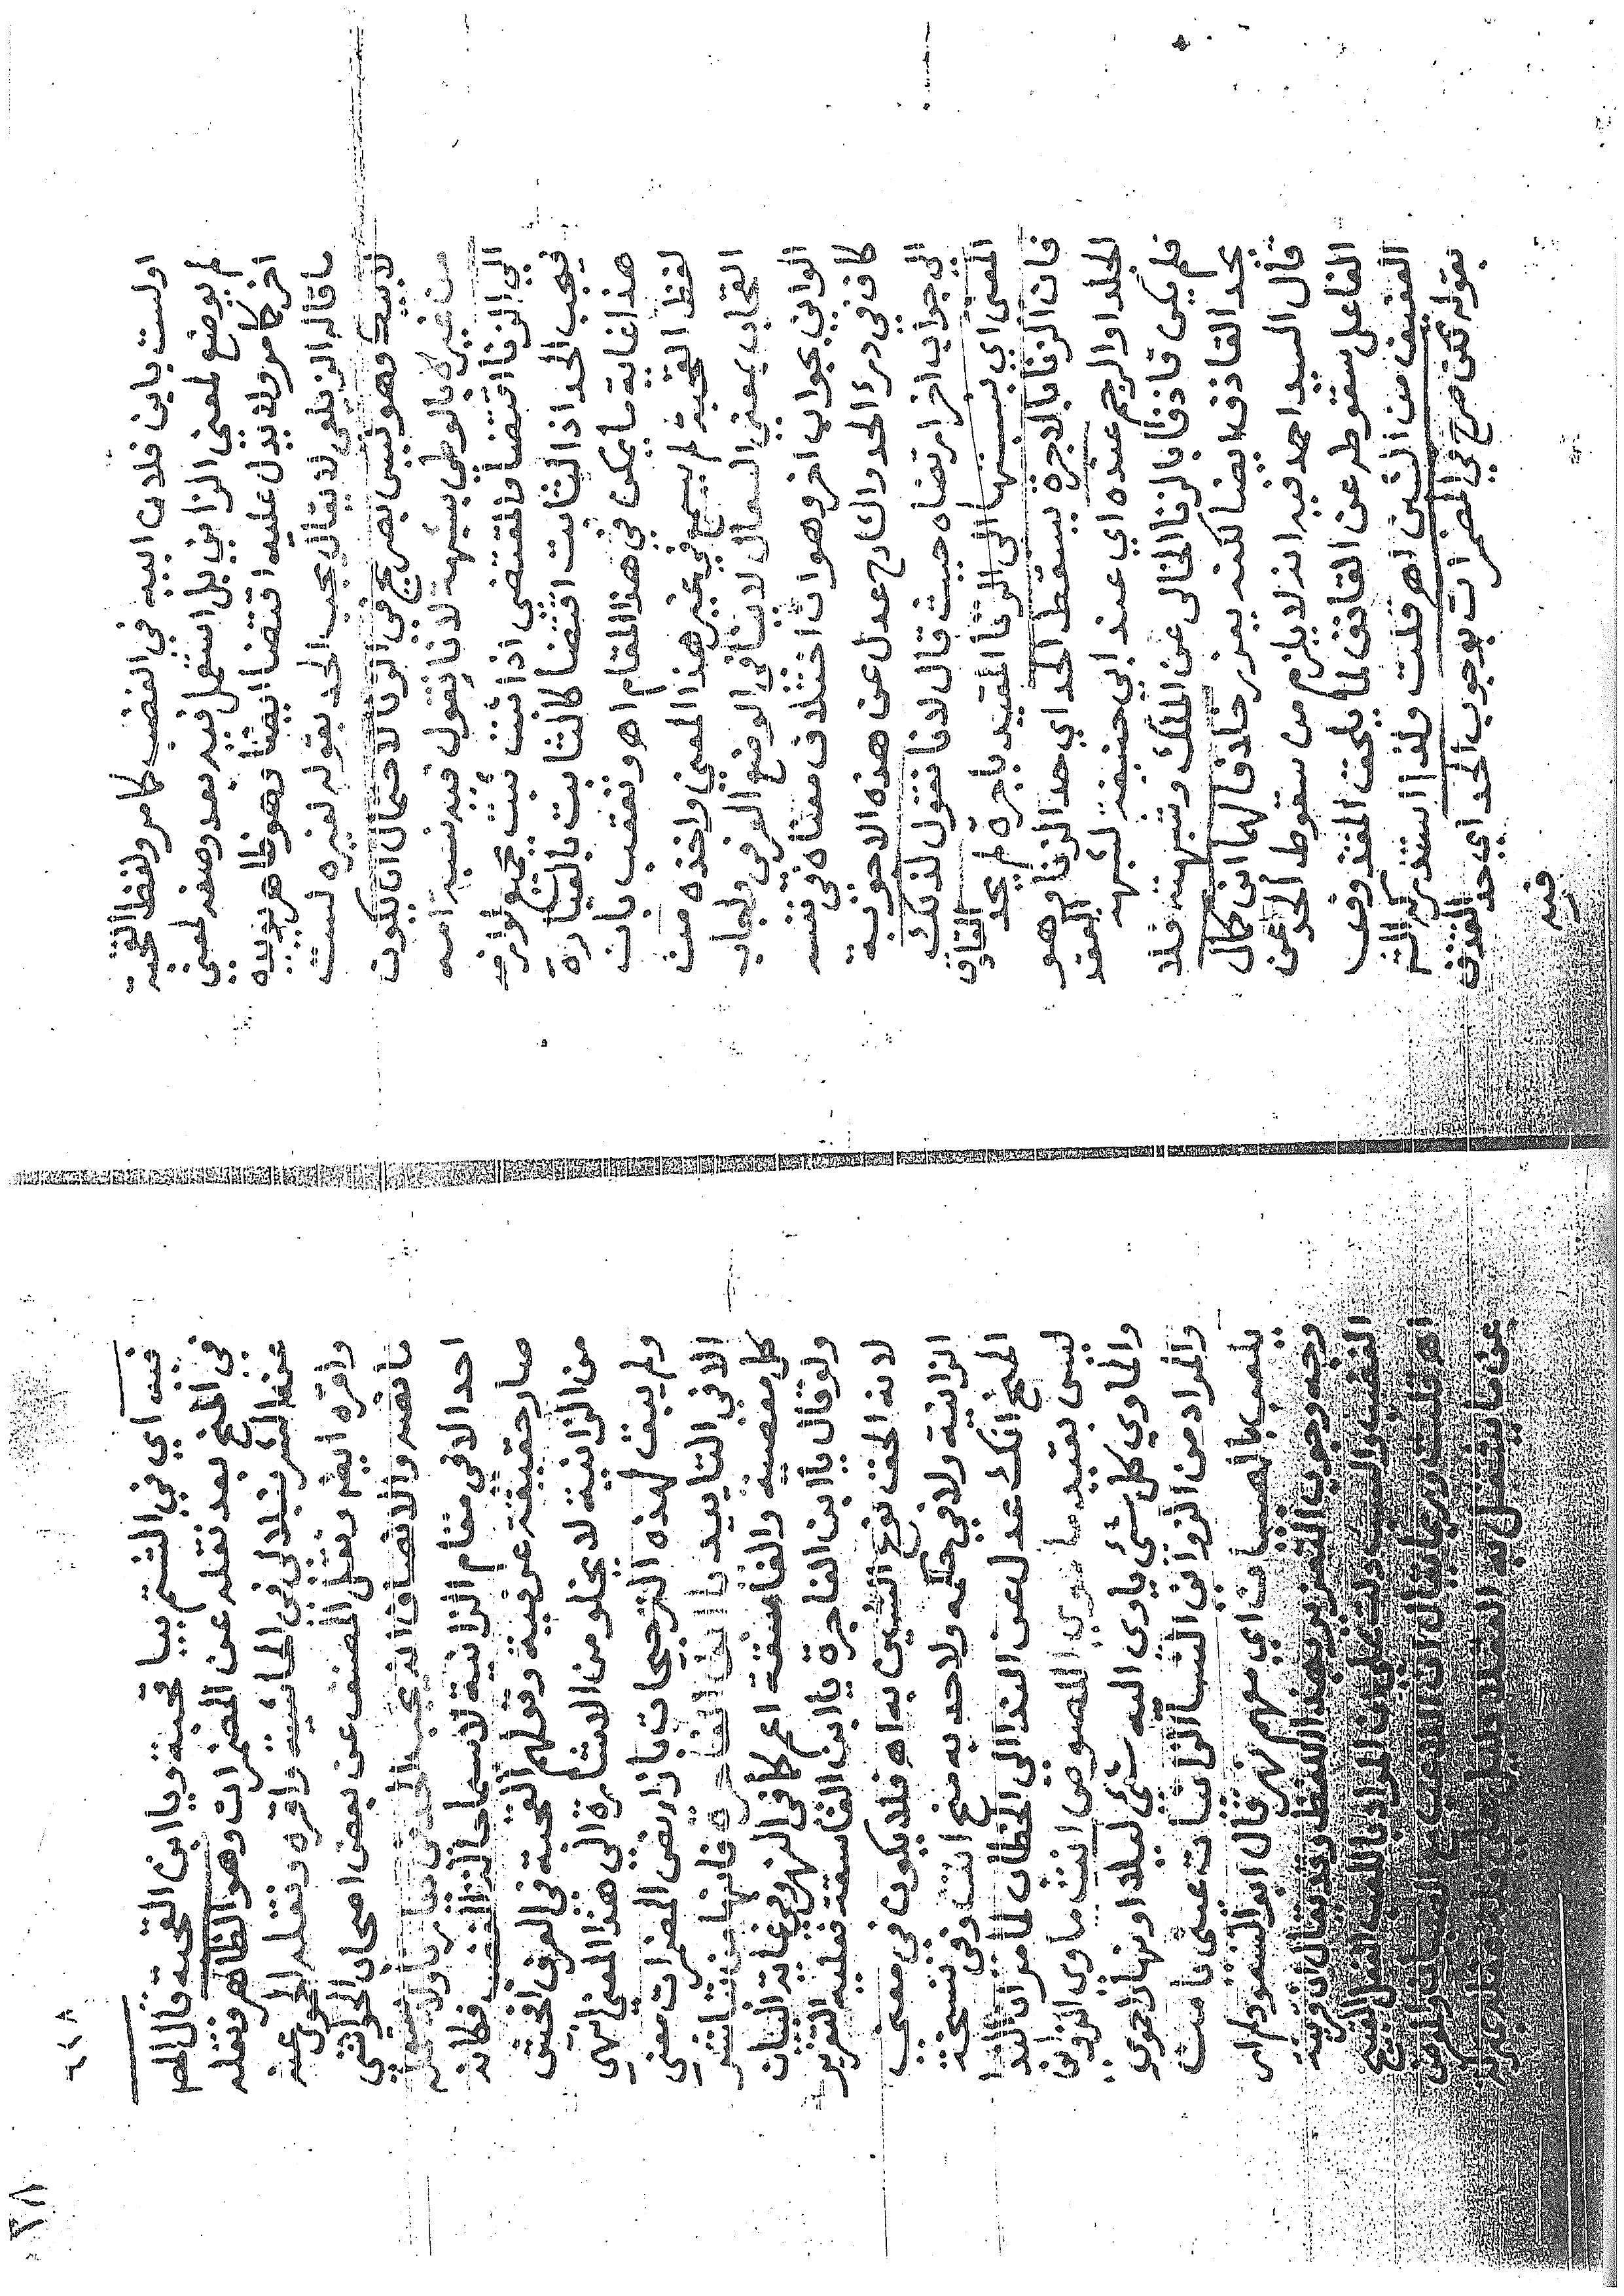 اولست بابن فلان ابيه في الغضب كما مر ولفظ القحبة
لم يوضع لمعنى الزاني بل استعمل فيه بعد وضعه لمعنى
اخر كما مر ولا يدل عليه اقتضا ايضا وهو ظاهر يويده
ما قاله الزيلعي لا يقال يجب الحد بقوله لغيره لست
لابيك وهو ليس بصريح في الزنا لاحتمال ان يكون
من غيره بالوطي بشبهة لانا نقول فيه نسبة امه
الى الزنا اقتضا والمقتضى اذا ثبت ثبت بجميع لوازمه
فيجب الحد اذ الثابت اقتضا كالثابت بالعبارة
هذا غاية ما يمكن في هذا المقام اه وتعقب بان
لفظ القحبة لم يسمع في غير هذا المعنى واخذه من
القحاب بمعنى السعال لا ينافي الوضع العرفي واجاب
الواني بجواب اخر وهو ان اختلاف معناه في نفسه
كاف في درء الحد والشارح عدل عن هذه الاجوبة
الى جواب اخر ارتضاه حيث قال لانا نقول لذلك
المعنى اي نسبتها الى الزنا المقيد باجرة لم يحد القاذف
فان الزنا بالاجرة يسقط الحد اي حد الزنا وهو
الجلد او الرجم عنده اي عند ابي حنيفة لشبهة العقد
فلم يكن قاذفا بالزنا الخالي عن الملك وشبهته فلا
يحد القاذف ايضا لكنه يعزر خلافا لهما ابن كمال
قال السيد احمد فيه انه لا يلزم من سقوط الحد عن
الفاعل سقوطه عن القاذف لما يلحق المقذوف
العفيف من الشين اهـ قلت ولذا استدركه الشم
بقوله لكن صرح في المضمرات بوجوب الحد اي حد القذف
فيه
٢٨
فيه اي في الشتم بيا قحبة ويا ابن القحبة قال المص
في المنح بعد نقله عن المضمرات وهو الظاهر ونقله
عنه الشرنبلالي في الحاشية واقره ونقله الحموي عنه
واقره ايضا ونقل المصنف عن بعض اصحاب الحواشي
ما نصه والانصاف انه يجب الحد في ديارنا
احد الا في مقام الزانية لا سيما حالة الغضب فكانه
صار حقيقة عرفية وقولهم القحبة في العرف افحش
من الزانية لا يخلو من الاشارة الى هذا المعنى انتهى
ولم يبق لهذه الترجيحات بازا نص المضمرات معنى
الا في التاييد يا ابن الفاجرة فانها من تباشر
كل معصية والفاسقة اعم كما في النهر وفي غاية البيان
ولو قال يا ابن الفاجرة يا ابن الفاسقة فعليه التعزير
لانه الحق نوع الشين به اهـ فلا يكون في معنى
الزانية ولا في حكمه ولا حد به منح انت وفي نسخة
المنح انك عدل عن الندا الى الخطاب لما مر ان الندا
ليس بقيد ماوى اللصوص انت ماوى الزواني
والماوي كل شي ياوى اليه شي ليلا او نهارا حموي
والمراد من الزواني النسا الزانيات عيني يا من
يلعب بالصبيان اي معهم نهر قال ابو السعود لم ار
وجه وجوب التعزير بهذا اللفظ وقد يقال ان قرينة
الغضب والسب تدل على ان المراد باللعب الفعل القبيح
اهـ قلت وربما يقال ان اللعب مع الصبيان